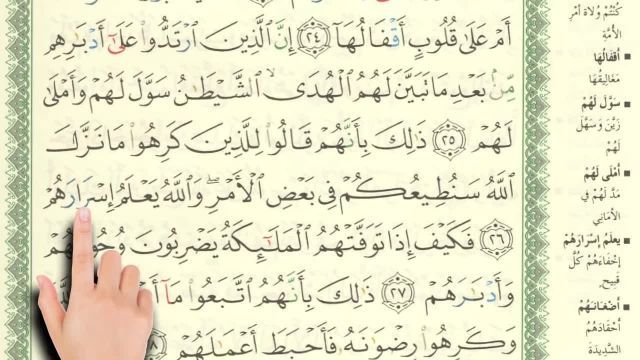 أَمْ عَلَىٰ قُلُوبٍ أَقْفَالُهَا ﴿٢٤﴾ إِنَّ ٱلَّذِينَ ٱرْتَدُّوا۟ عَلَىٰٓ أَدْبَٰرِهِم
مِّنۢ بَعْدِ مَا تَبَيَّنَ لَهُمُ ٱلْهُدَى ۙ ٱلشَّيْطَٰنُ سَوَّلَ لَهُمْ وَأَمْلَىٰ
لَهُمْ ﴿٢٥﴾ ذَٰلِكَ بِأَنَّهُمْ قَالُوا۟ لِلَّذِينَ كَرِهُوا۟ مَا نَزَّلَ
ٱللَّهُ سَنُطِيعُكُمْ فِى بَعْضِ ٱلْأَمْرِ ۖ وَٱللَّهُ يَعْلَمُ إِسْرَارَهُمْ
﴿٢٦﴾ فَكَيْفَ إِذَا تَوَفَّتْهُمُ ٱلْمَلَٰٓئِكَةُ يَضْرِبُونَ وُجُوهَهُمْ
وَأَدْبَٰرَهُمْ ﴿٢٧﴾ ذَٰلِكَ بِأَنَّهُمُ ٱتَّبَعُوا۟ مَآ
وَكَرِهُوا۟ رِضْوَٰنَهُۥ فَأَحْبَطَ أَعْمَٰلَهُمْ
كُنْتُمْ وُلَاةَ أَمْرِ
الْأُمَّةِ
■ أَقْفَالُهَا
مَغَالِيقُهَا
■ سَوَّلَ لَهُمْ
زَيَّنَ وَسَهَّلَ
لَهُمْ
■ أَمْلَى لَهُمْ
مَدَّ لَهُمْ فِي
الْأَمَانِي
■ يَعْلَمُ إِسْرَارَهُمْ
إِخْفَاءَهُمْ كُلَّ
قَبِيحٍ
■ أَضْغَانَهُمْ
أَحْقَادَهُمُ
الشَّدِيدَةَ